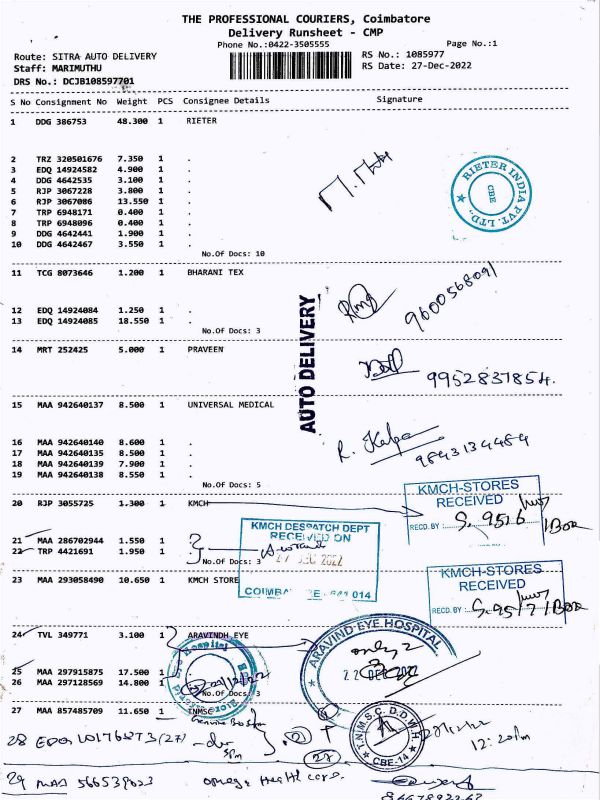 THE PROFESSIONAL COURIERS, Coimbatore
Delivery Runsheet - CMP
Phone No.:0422-3505555
Page No.:1
Route: SITRA AUTO DELIVERY
Staff: MARIMUTHU
DRS No.: DCJB108597701
RS No.: 1085977
RS Date: 27-Dec-2022
S No Consignment No Weight PCS Consignee Details Signature
1 DDG 386753 48.300 1 RIETER
2 TRZ 320501676 7.350 1 .
3 EDQ 14924582 4.900 1 .
4 DDG 4642535 3.100 1 .
5 RJP 3067228 3.800 1 .
6 RJP 3067086 13.550 1 .
7 TRP 6948171 0.400 1 .
8 TRP 6948096 0.400 1 .
9 DDG 4642441 1.900 1 .
10 DDG 4642467 3.550 1 .
No.Of Docs: 10
RIETER INDIA PVT. LTD.,
CBE
11 TCG 8073646 1.200 1 BHARANI TEX
12 EDQ 14924084 1.250 1 .
13 EDQ 14924085 18.550 1 .
No.Of Docs: 3
9600568091
AUTO DELIVERY
14 MRT 252425 5.000 1 PRAVEEN
9952837854.
15 MAA 942640137 8.500 1 UNIVERSAL MEDICAL
16 MAA 942640140 8.600 1 .
17 MAA 942640135 8.500 1 .
18 MAA 942640139 7.900 1 .
19 MAA 942640138 8.550 1 .
No.Of Docs: 5
9843134484
20 RJP 3055725 1.300 1 KMCH
KMCH-STORES
RECEIVED
RECD.BY
1 Box
21 MAA 286702944 1.550 1
22 TRP 4421691 1.950 1
No.Of Docs: 3
KMCH DESPATCH DEPT
RECEIVED ON
27 DEC 2022
COIMBATORE - 641 014
23 MAA 293058490 10.650 1 KMCH STORE
KMCH-STORES
RECEIVED
RECD.BY
1 Box
24 TVL 349771 3.100 1 ARAVINDH EYE
25 MAA 297915875 17.500 1
26 MAA 297128569 14.800 1
No.Of Docs: 3
ARAVIND EYE HOSPITAL
only 2
27 MAA 857485709 11.650 1 TNMSC
T.N.M.S.C. D.D.W.H
CBE-14
12:20pm
28
29 MAA
Omega Health care.